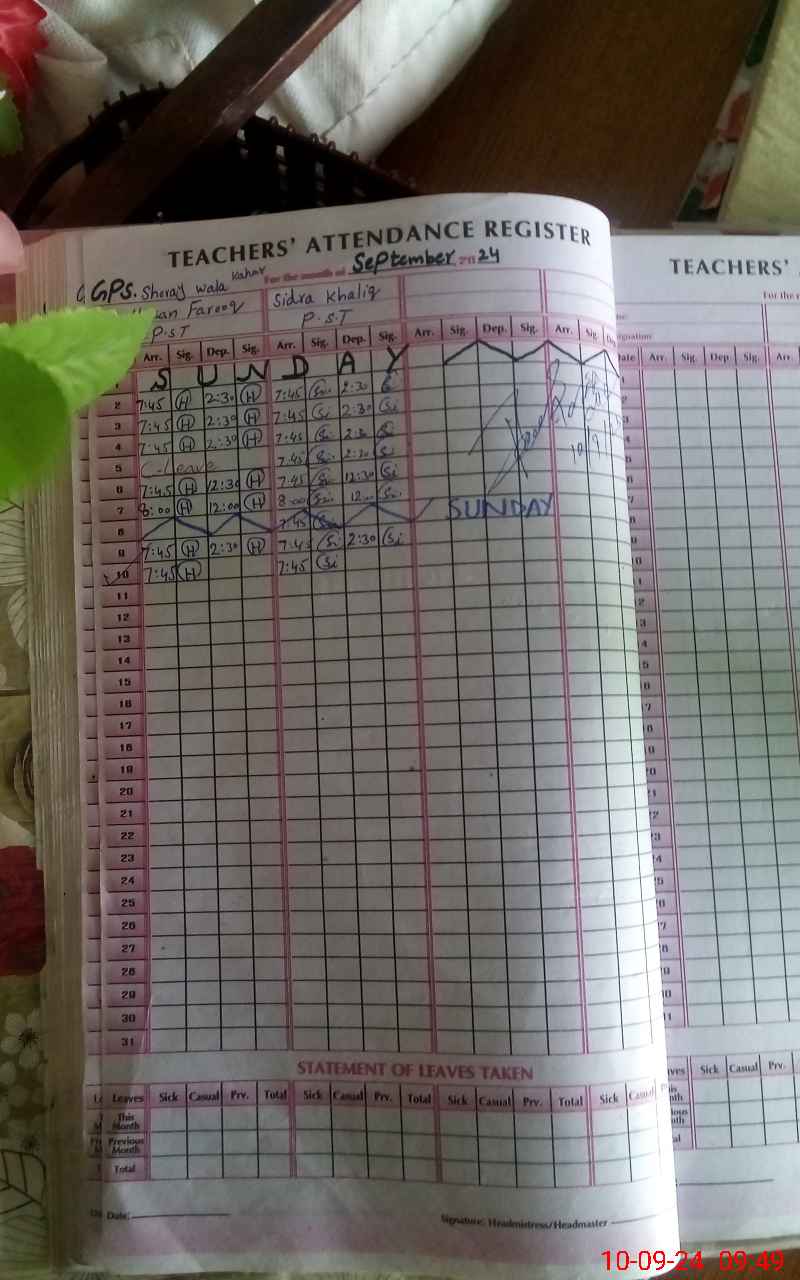 TEACHERS' ATTENDANCE REGISTER
GPS. Sheray wala Kahar For the month of September 2024
Farooq Sidra Khaliq
P.S.T P.S.T
Arr. Sig. Dep. Sig. Arr. Sig. Dep. Sig. Arr. Sig. Dep. Sig. Arr. Sig.
1 SUNDAY
2 7:45 H 2:30 H 7:45 Si 2:30 Si
3 7:45 H 2:30 H 7:45 Si 2:30 Si
4 7:45 H 2:30 H 7:45 Si 2:30 Si
5 C-Leave 7:45 Si 2:30 Si
6 7:45 H 12:30 H 7:45 Si 12:30 Si
7 8:00 H 12:00 H 8:00 Si 12:00 Si
8 7:45 SUNDAY
9 7:45 H 2:30 H 7:45 Si 2:30 Si
10 7:45 H 7:45 Si
11
12
13
14
15
16
17
18
19
20
21
22
23
24
25
26
27
28
29
30
31
STATEMENT OF LEAVES TAKEN
Leaves Sick Casual Prv. Total Sick Casual Prv. Total Sick Casual Prv. Total Sick Casual
This Month
Previous Month
Total
Date:
Signature: Headmistress/Headmaster
TEACHERS'
For the
Date Arr. Sig. Dep Sig. Arr.
Sick Casual Prv.
10-09-24 09:49